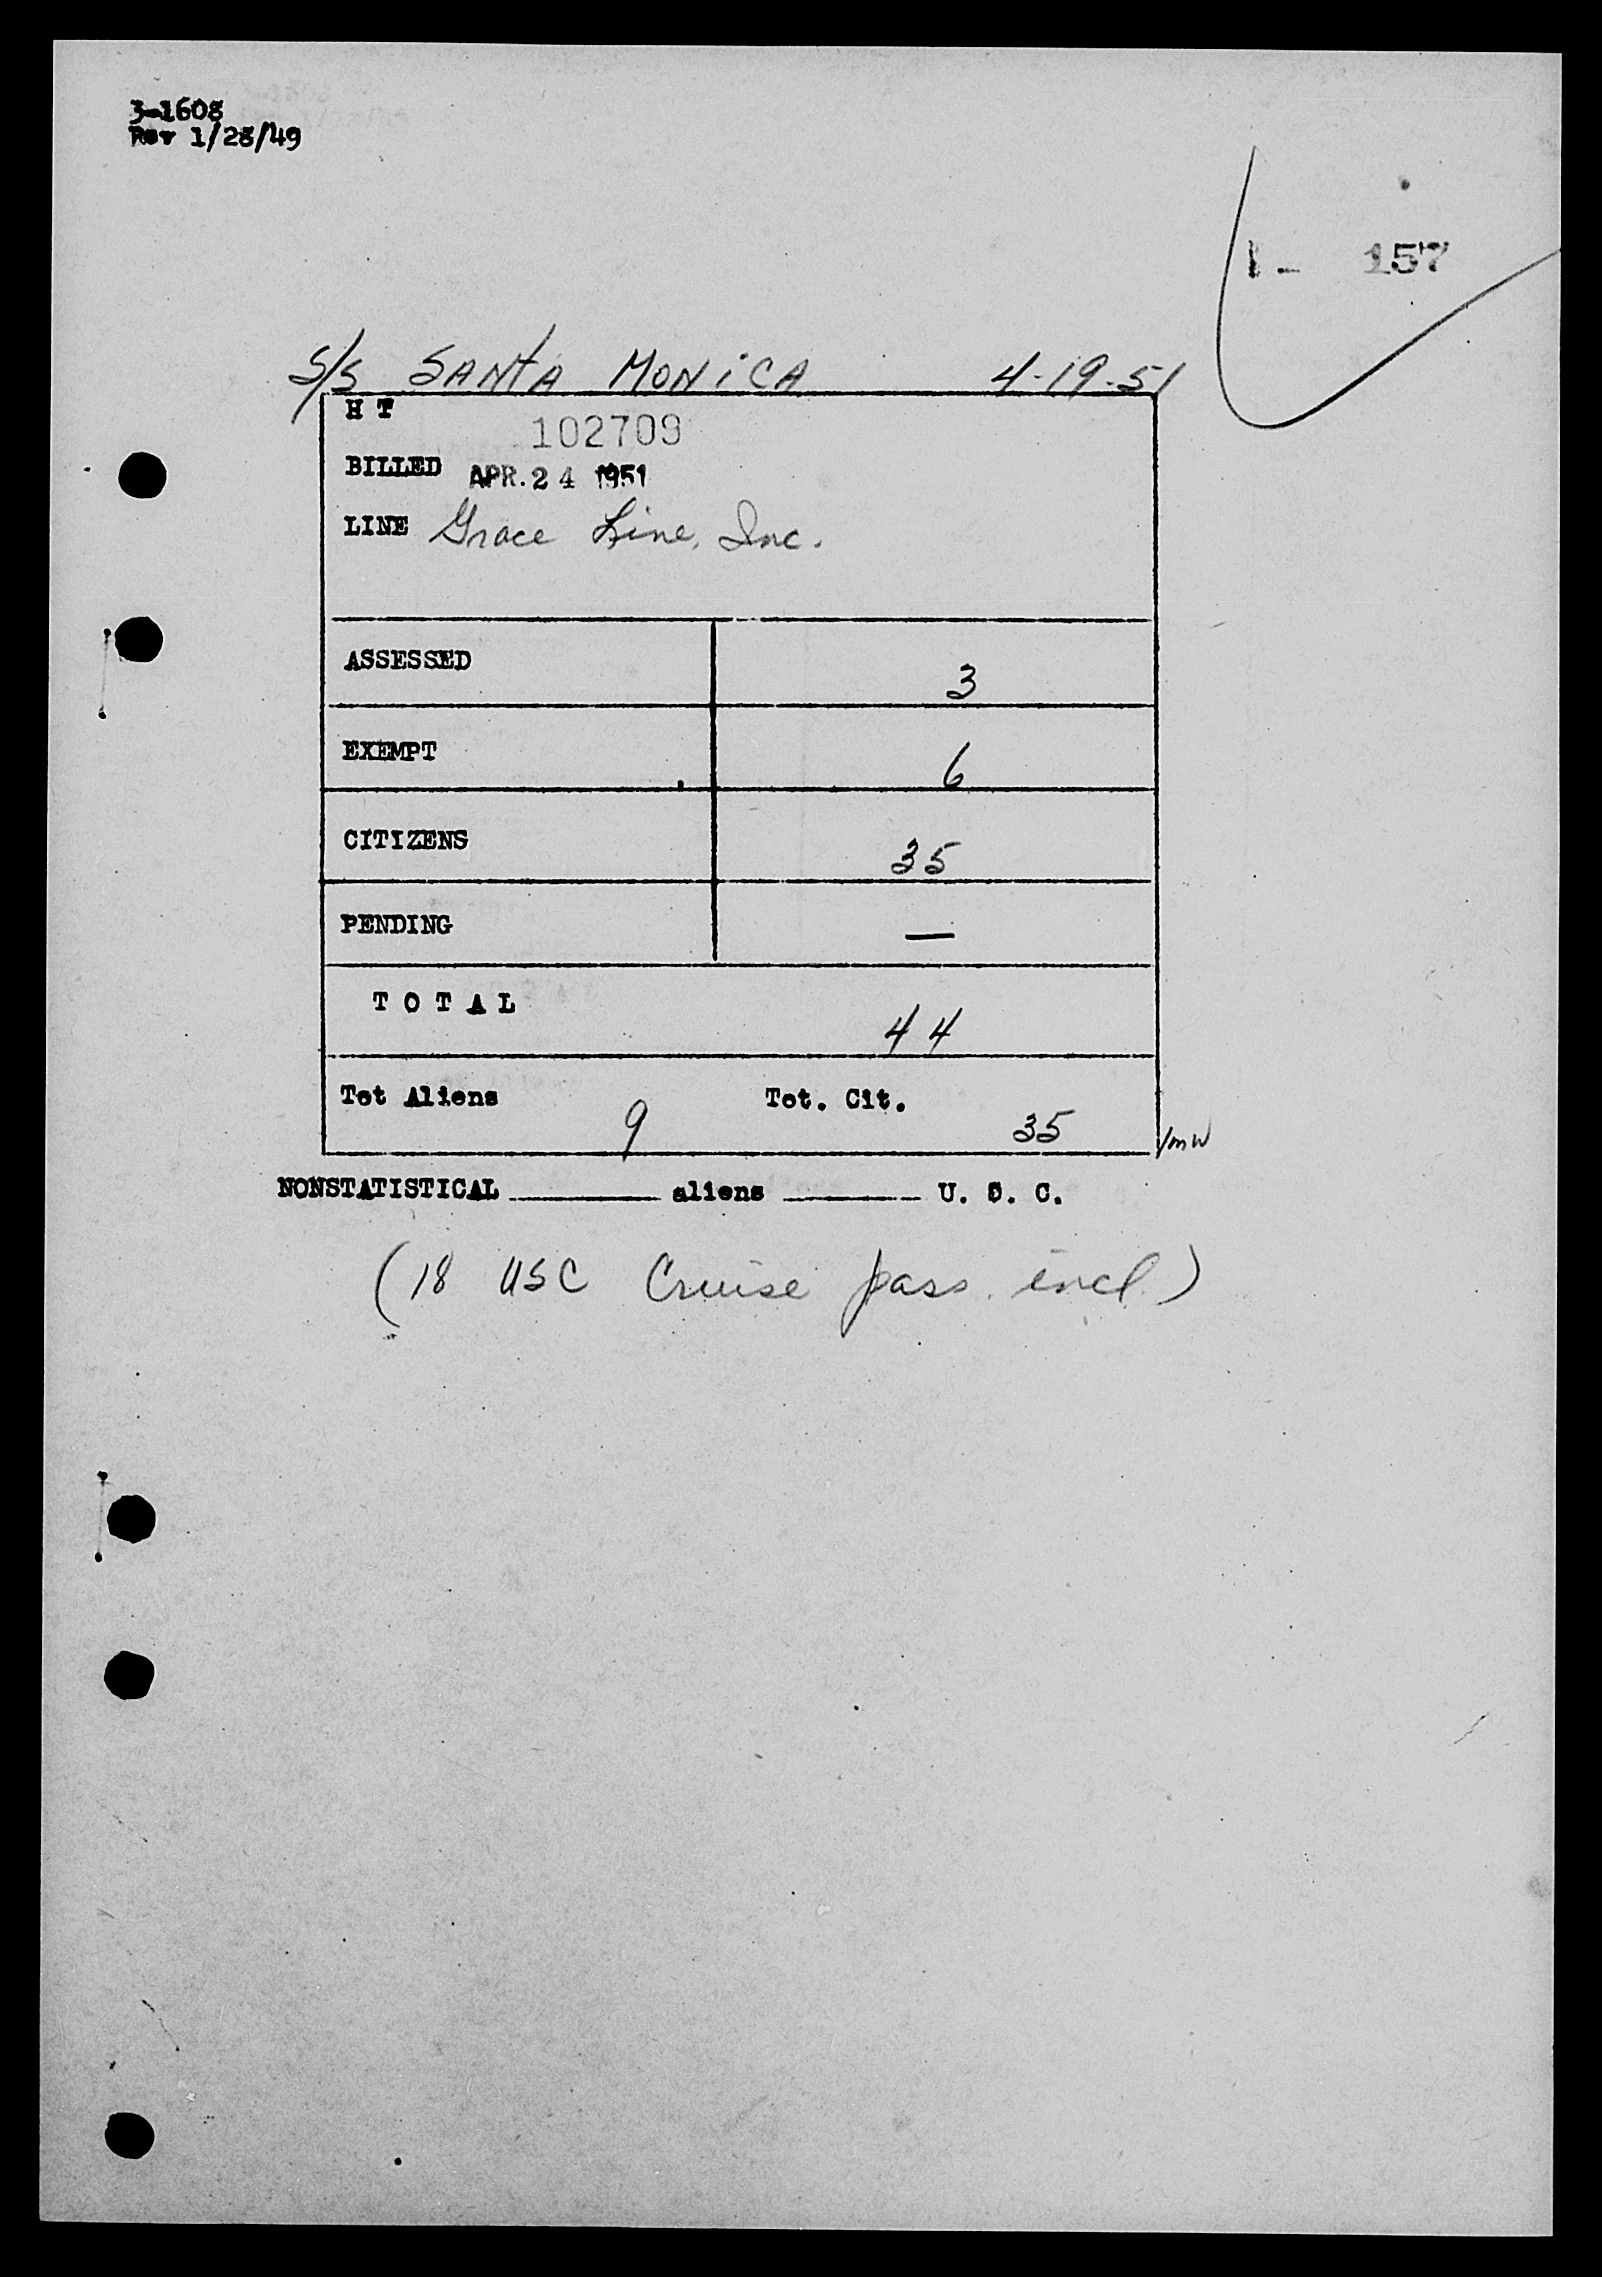 3-1608
Rev 1/28/49
1- 157
S/S SANTA MONICA 4-19-51
H T
102709
BILLED APR. 24 1951
LINE Grace Line, Inc.
ASSESSED 3
EXEMPT 6
CITIZENS 35
PENDING —
T O T A L 44
Tot Aliens 9 Tot. Cit. 35 /mw
NONSTATISTICAL ______ aliens ______ U. S. C.
(18 USC Cruise pass. incl.)